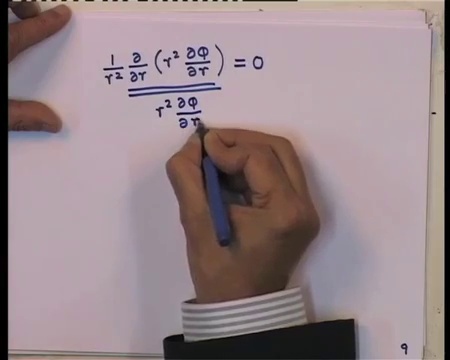 1/r² ∂/∂r (r² ∂Φ/∂r) = 0
r² ∂Φ/∂r
9